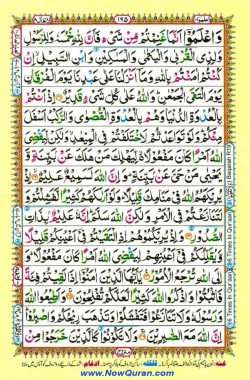 واعلموا ١٠
١٦٥
الانفال ٨
وَاعْلَمُوْٓا اَنَّمَا غَنِمْتُمْ مِّنْ شَيْءٍ فَاَنَّ لِلّٰهِ خُمُسَهٗ وَلِلرَّسُوْلِ
وَلِذِي الْقُرْبٰى وَالْيَتٰمٰى وَالْمَسٰكِيْنِ وَابْنِ السَّبِيْلِ اِنْ
كُنْتُمْ اٰمَنْتُمْ بِاللّٰهِ وَمَآ اَنْزَلْنَا عَلٰى عَبْدِنَا يَوْمَ الْفُرْقَانِ
يَوْمَ الْتَقَى الْجَمْعٰنِ وَاللّٰهُ عَلٰى كُلِّ شَيْءٍ قَدِيْرٌ اِذْ اَنْتُمْ
بِالْعُدْوَةِ الدُّنْيَا وَهُمْ بِالْعُدْوَةِ الْقُصْوٰى وَالرَّكْبُ اَسْفَلَ
مِنْكُمْ وَلَوْ تَوَاعَدْتُّمْ لَاخْتَلَفْتُمْ فِي الْمِيْعٰدِ وَلٰكِنْ لِّيَقْضِيَ
اللّٰهُ اَمْرًا كَانَ مَفْعُوْلًا لِّيَهْلِكَ مَنْ هَلَكَ عَنْ بَيِّنَةٍ وَّ
يَحْيٰى مَنْ حَيَّ عَنْ بَيِّنَةٍ وَاِنَّ اللّٰهَ لَسَمِيْعٌ عَلِيْمٌ اِذْ
يُرِيْكَهُمُ اللّٰهُ فِيْ مَنَامِكَ قَلِيْلًا وَلَوْ اَرٰىكَهُمْ كَثِيْرًا لَّفَشِلْتُمْ
وَلَتَنَازَعْتُمْ فِي الْاَمْرِ وَلٰكِنَّ اللّٰهَ سَلَّمَ اِنَّهٗ عَلِيْمٌۢ بِذَاتِ
الصُّدُوْرِ وَاِذْ يُرِيْكُمُوْهُمْ اِذِ الْتَقَيْتُمْ فِيْٓ اَعْيُنِكُمْ قَلِيْلًا
وَّيُقَلِّلُكُمْ فِيْٓ اَعْيُنِهِمْ لِيَقْضِيَ اللّٰهُ اَمْرًا كَانَ مَفْعُوْلًا وَ
اِلَى اللّٰهِ تُرْجَعُ الْاُمُوْرُ يٰٓاَيُّهَا الَّذِيْنَ اٰمَنُوْٓا اِذَا لَقِيْتُمْ فِئَةً
فَاثْبُتُوْا وَاذْكُرُوا اللّٰهَ كَثِيْرًا لَّعَلَّكُمْ تُفْلِحُوْنَ وَاَطِيْعُوا اللّٰهَ
وَرَسُوْلَهٗ وَلَا تَنَازَعُوْا فَتَفْشَلُوْا وَتَذْهَبَ رِيْحُكُمْ وَاصْبِرُوْا
اِنَّ اللّٰهَ مَعَ الصّٰبِرِيْنَ وَلَا تَكُوْنُوْا كَالَّذِيْنَ خَرَجُوْا مِنْ
www.NowQuran.com